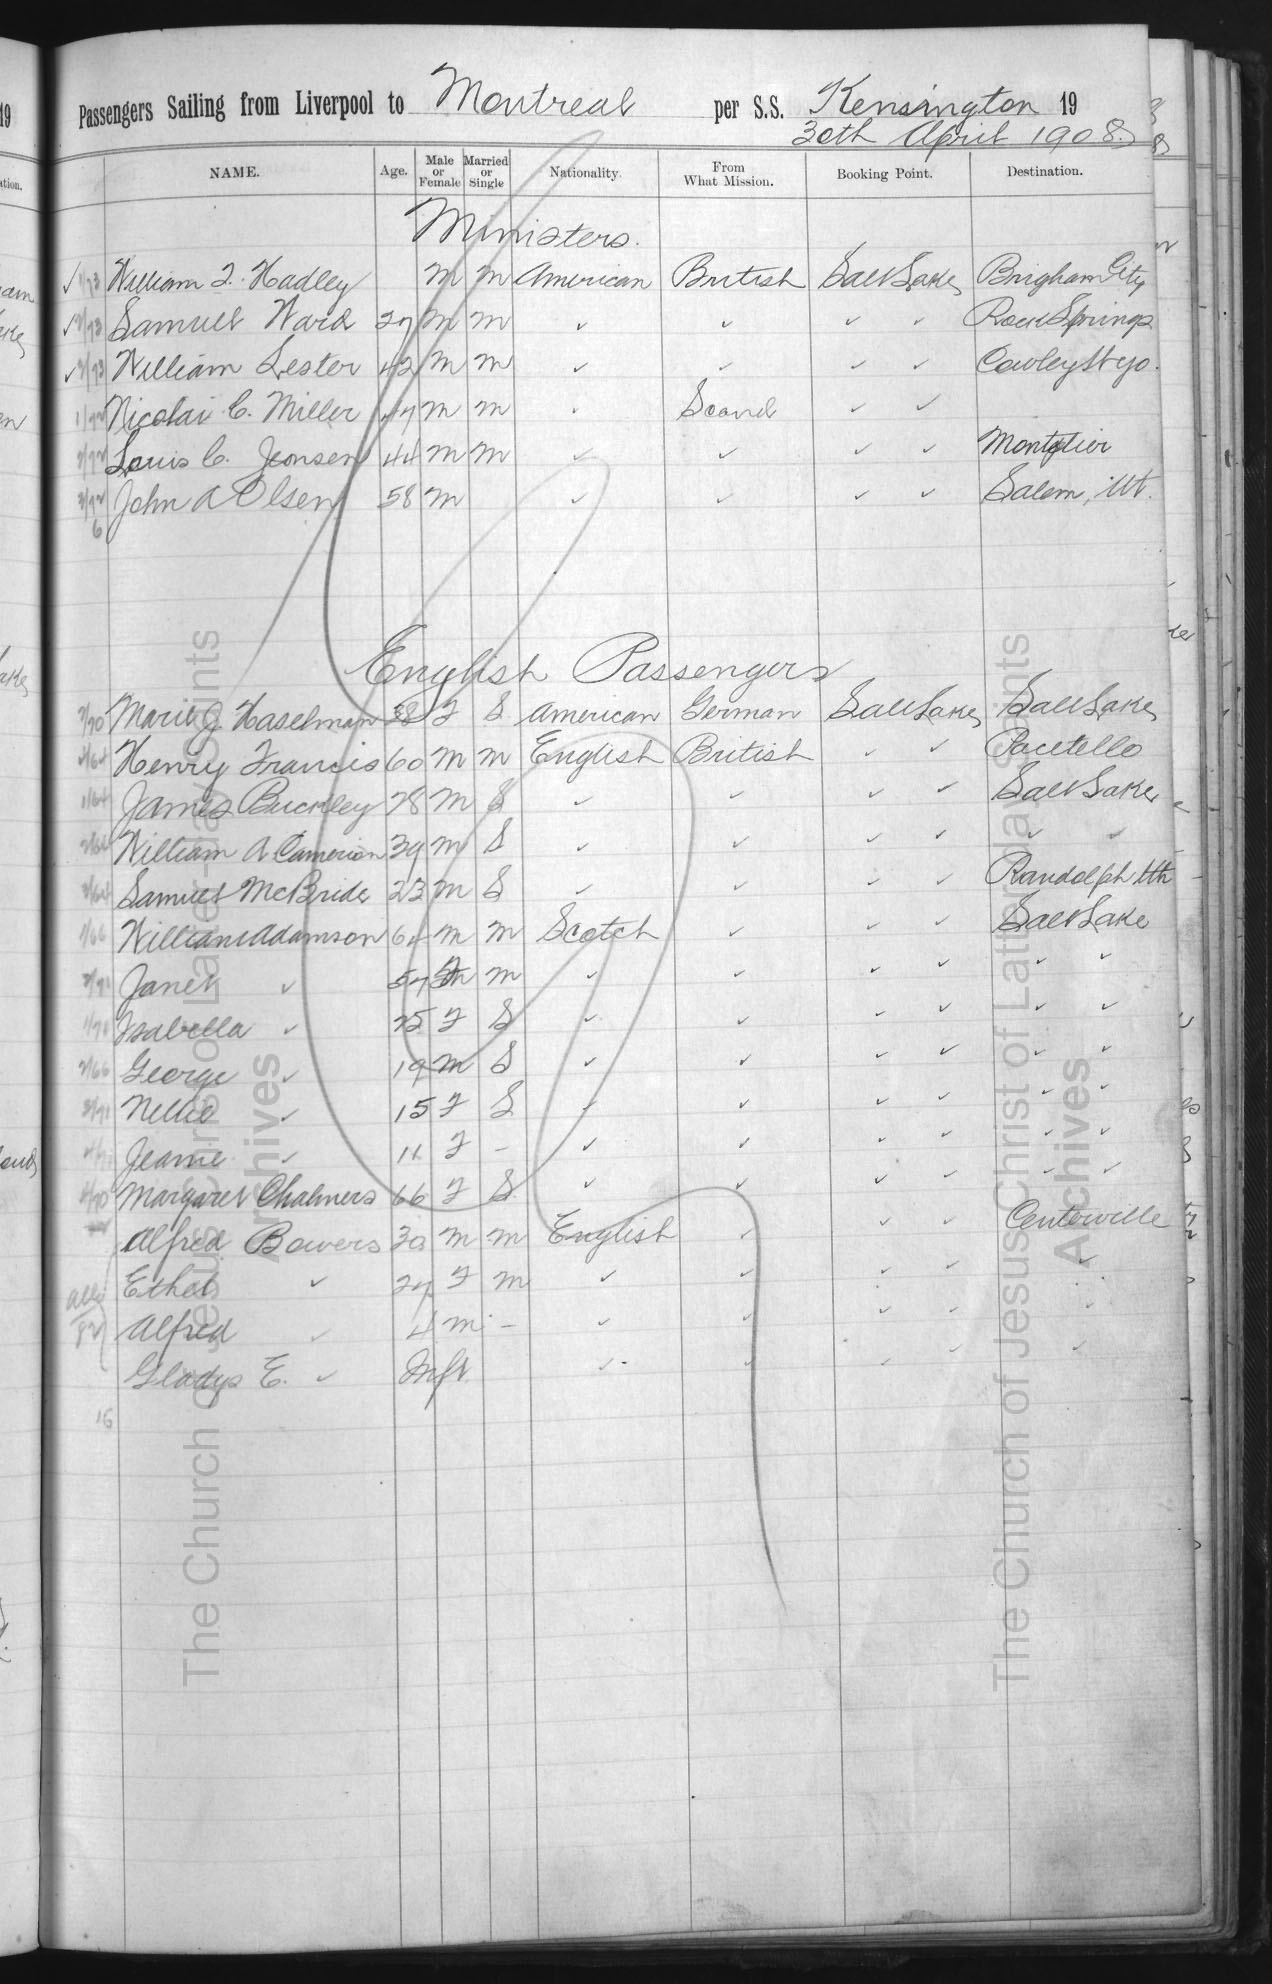 Passengers Sailing from Liverpool to Montreal per S.S. Kensington 19
30th April 1908
NAME. Age. Male or Female Married or Single Nationality. From What Mission. Booking Point. Destination.
Ministers.
✓ 1/73 William F. Hadley M M American British Salt Lake Brigham City
✓ 2/73 Samuel Ward 27 M M ✓ ✓ ✓ ✓ Rock Springs
✓ 3/73 William Lester 42 M M ✓ ✓ ✓ ✓ Cowley Wyo.
1/72 Nicolai C. Miller 47 M M ✓ Scand ✓ ✓
2/72 Louis C. Jensen 44 M M ✓ ✓ ✓ ✓ Montpelier
3/72 John A Olsen 58 M ✓ ✓ ✓ ✓ Salem, Ut.
6
English Passengers
2/70 Marie J Haselman 38 F S American German Salt Lake Salt Lake
4/64 Henry Francis 60 M M English British ✓ ✓ Pocatello
1/64 James Buckley 28 M S ✓ ✓ ✓ ✓ Salt Lake
2/64 William A Camerion 39 M S ✓ ✓ ✓ ✓ ✓ ✓
3/64 Samuel McBride 23 M S ✓ ✓ ✓ ✓ Randolph Uth
1/66 William Adamson 64 M M Scotch ✓ ✓ ✓ Salt Lake
2/71 Janet ✓ 57 F M ✓ ✓ ✓ ✓ ✓ ✓
1/71 Isabella ✓ 25 F S ✓ ✓ ✓ ✓ ✓ ✓
2/66 George ✓ 19 M S ✓ ✓ ✓ ✓ ✓ ✓
3/71 Nellie ✓ 15 F S ✓ ✓ ✓ ✓ ✓ ✓
4/71 Jeanie ✓ 11 F - ✓ ✓ ✓ ✓ ✓ ✓
1/70 Margaret Chalmers 66 F S ✓ ✓ ✓ ✓ ✓ ✓
Alfred Bowers 30 M M English ✓ ✓ ✓ Centerville
Ethel ✓ 27 F M ✓ ✓ ✓ ✓ ✓
Alfred ✓ 4 M - ✓ ✓ ✓ ✓ ✓
Gladys E. ✓ Inft ✓ ✓ ✓ ✓ ✓
16
The Church of Jesus Christ of Latter-day Saints
Archives
The Church of Jesus Christ of Latter-day Saints
Archives